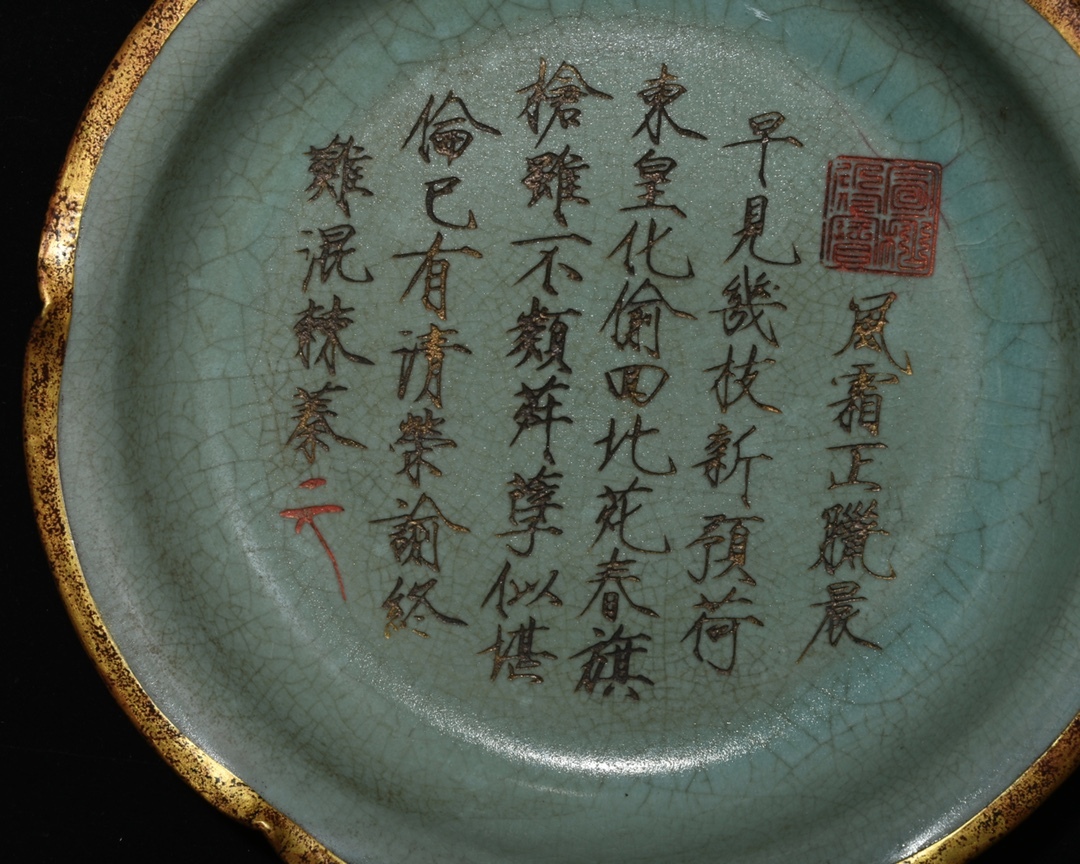 風霜正臘晨
早見幾枝新預荷
東皇化偷回北苑春旗
槍雖不類荈孽似堪
倫已有清榮諭終
難混棘蓁